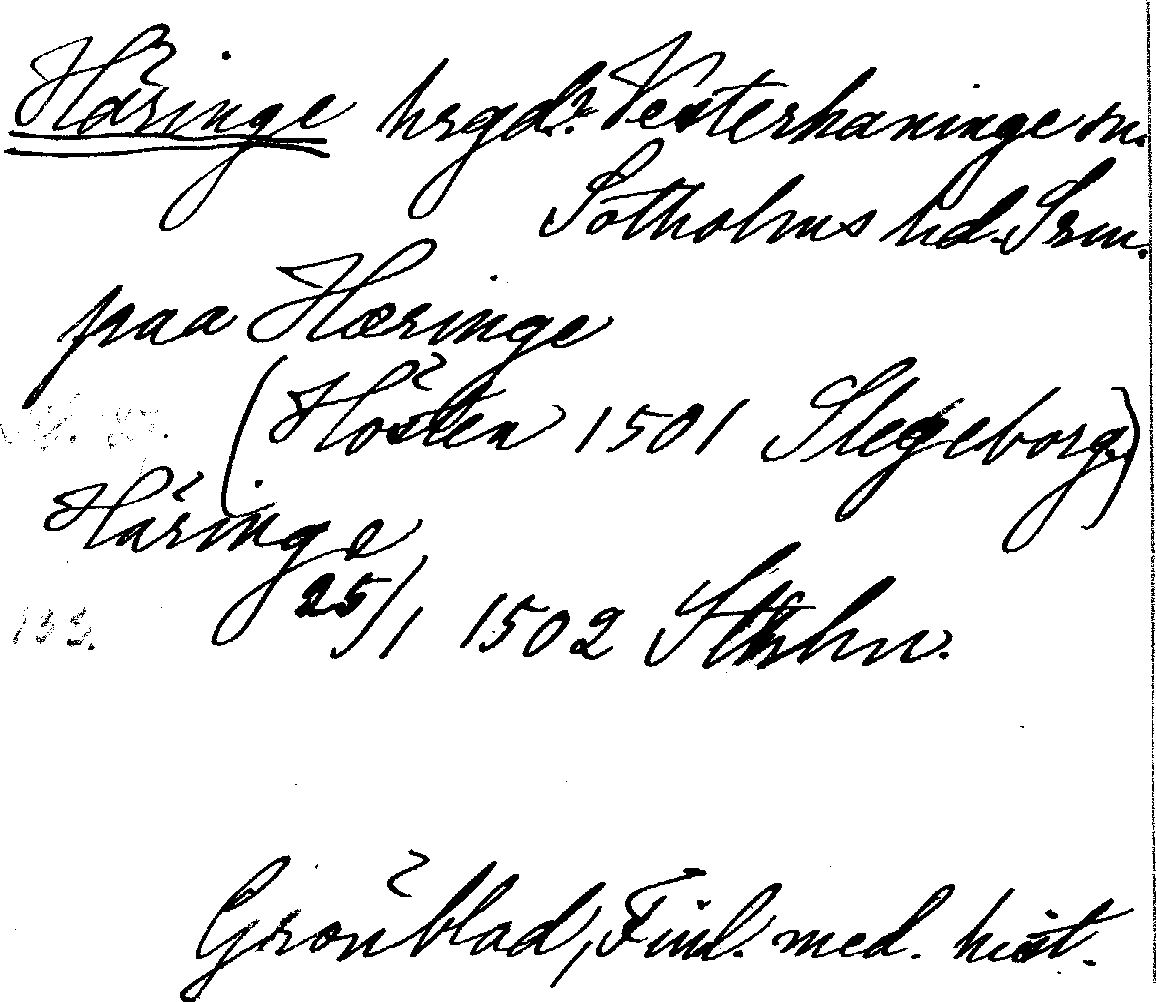 Häringe hrgd? Vesterhaninge sn.
Sotholms hd. Srm.
paa Hæringe
(Hösten 1501 Slegeborg)
Häringe
25/1 1502 Sthlm.
133.
Grönblad, Finl. med. hist.